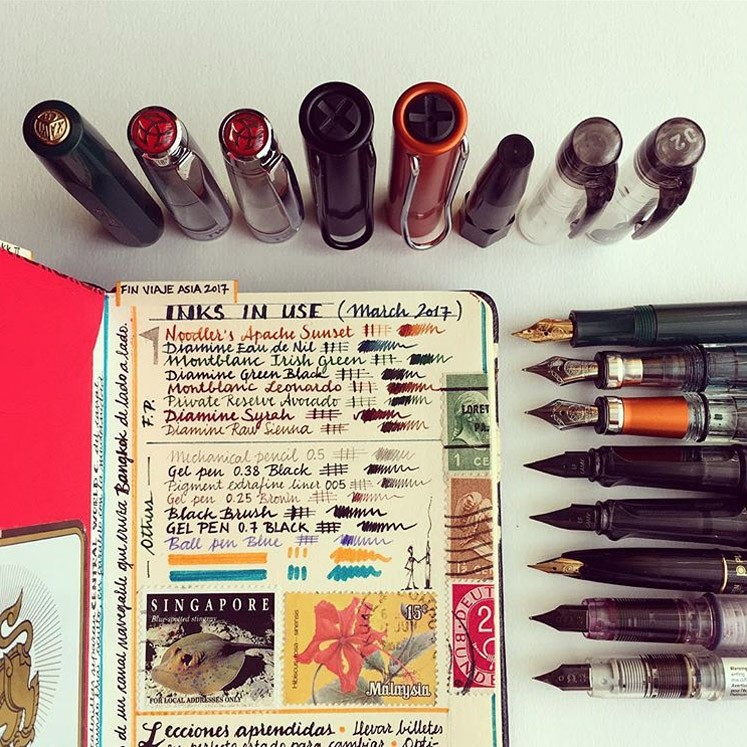 FIN VIAJE ASIA 2017
INKS IN USE (March 2017)
Noodler's Apache Sunset
Diamine Eau de Nil
Montblanc Irish Green
Diamine Green Black
Montblanc Leonardo
Private Reserve Avocado
Diamine Syrah
Diamine Raw Sienna
F.P.
Mechanical pencil 0.5
Gel pen 0.38 Black
Pigment extrafine liner 005
Gel pen 0.25 Brown
Black Brush
GEL PEN 0.7 BLACK
Ball pen Blue
Others
LORET
PA
1 CE
SINGAPORE
Blue-spotted stingray
FOR LOCAL ADDRESSES ONLY
15¢
Malaysia
DEUT
BUN
2
Lecciones aprendidas • Llevar billetes
en perfecto estado para cambiar • Opti-
de un canal navegable que cruza Bangkok de lado a lado.
CENTRAL WORLD